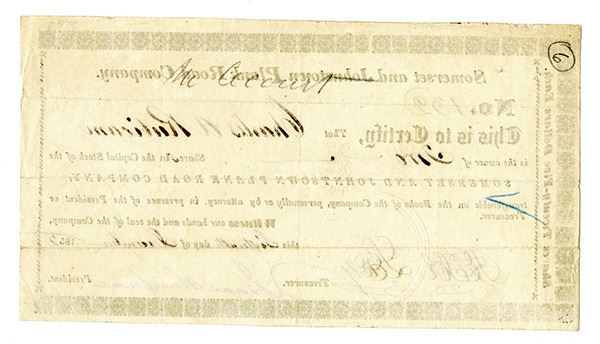 Somerset and Johnstown Plank Road Company.
The Account
No. 132
This is to Certify, That Charles A
is the owner of Five Share in the Capital Stock of the
SOMERSET AND JOHNTSOWN PLANK ROAD COMPANY,
transferable on the Books of the Company, personally or by attorney, in presence of the President or
Treasurer.
Witness our hands and the seal of the Company,
this day of December 185
Treasurer. President.
Shares Twenty-Five Dollars Each.
6